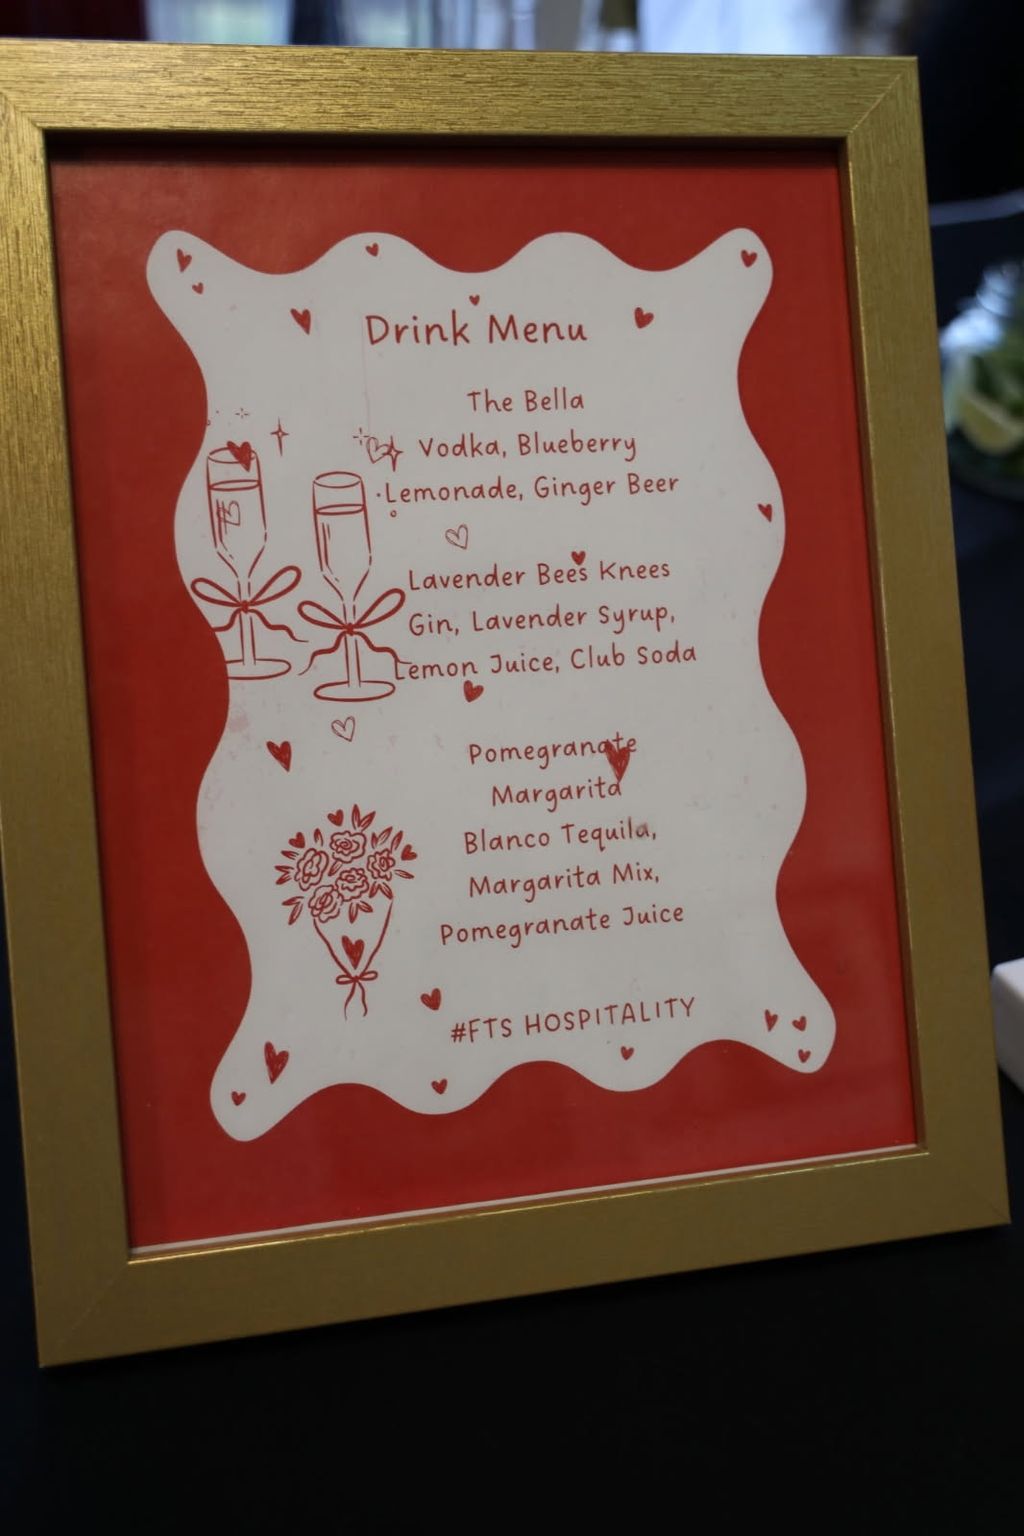 Drink Menu
The Bella
Vodka, Blueberry
Lemonade, Ginger Beer
Lavender Bees Knees
Gin, Lavender Syrup,
Lemon Juice, Club Soda
Pomegranate
Margarita
Blanco Tequila,
Margarita Mix,
Pomegranate Juice
#FTS HOSPITALITY